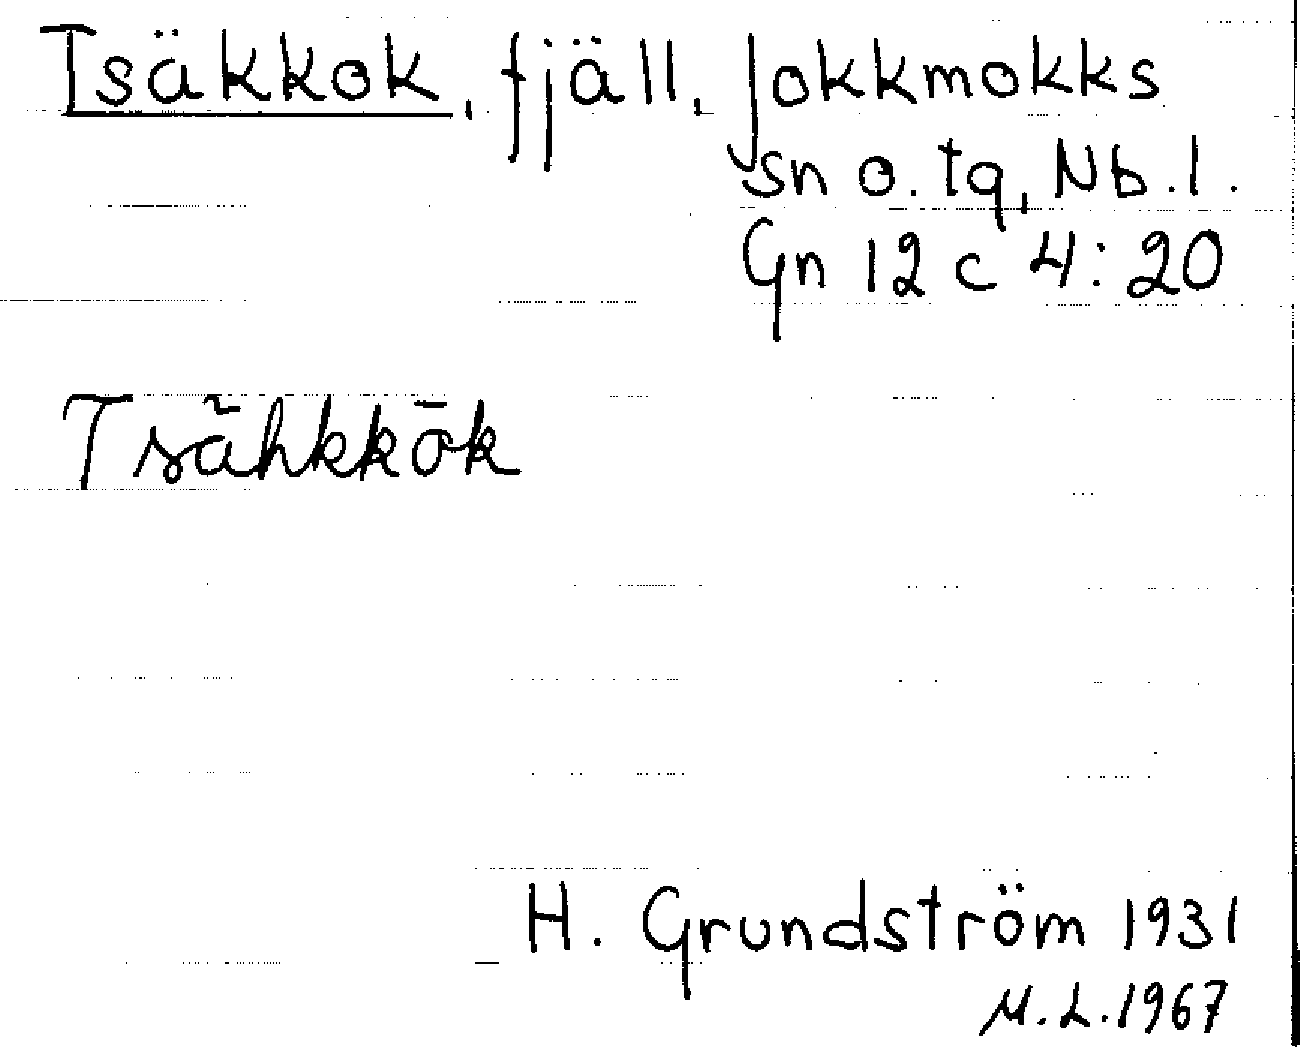 Tsäkkok, fjäll, Jokkmokks
sn o. tg, Nb. l.
Gn 12 c 4:20
Tsãhkkōk
H. Grundström 1931
M.L. 1967